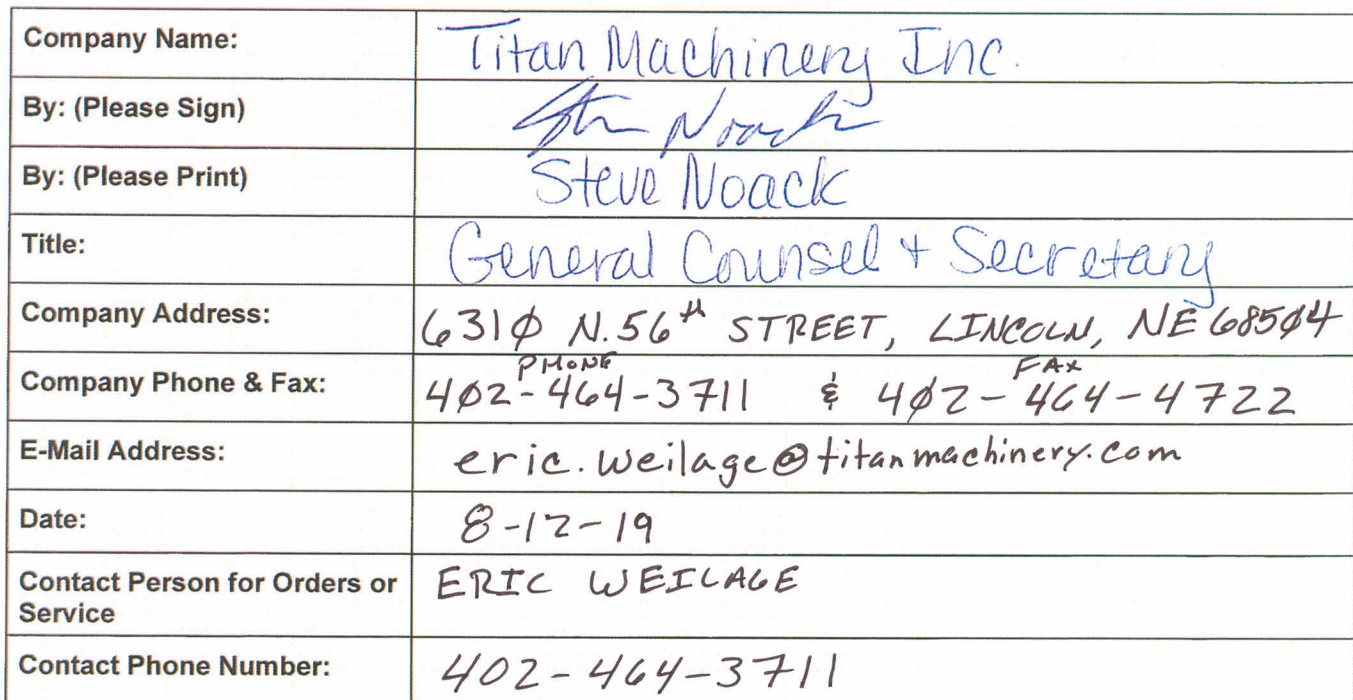 Company Name: Titan Machinery Inc.
By: (Please Sign) Steve Noack
By: (Please Print) Steve Noack
Title: General Counsel + Secretary
Company Address: 6310 N. 56th STREET, LINCOLN, NE 68504
PHONE FAX
Company Phone & Fax: 402-464-3711 & 402-464-4722
E-Mail Address: eric.weilage@titanmachinery.com
Date: 8-12-19
Contact Person for Orders or
Service ERIC WEILAGE
Contact Phone Number: 402-464-3711